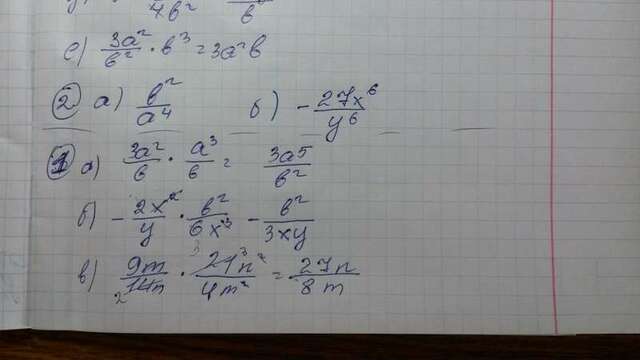 4в²
е) 3a²/в² · в³ = 3a²в
② а) в²/a⁴ б) -27x⁶/y⁶
① а) 3a²/в · a³/в = 3a⁵/в²
б) -2x²/y · в²/6x³ - в²/3xy
в) 9m/14n · 21n²/4m² = 27n/8m
2 3 3